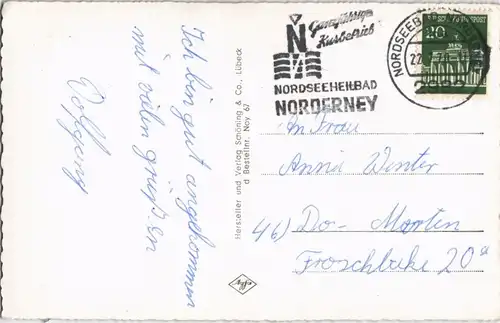 Ich bin gut angekommen
mit vielen grüßen
Wolfgang
Hersteller und Verlag Schöning & Co., Lübeck
d Bestellnr. Noy 67
Agfa
Ganzjähriger
Kurbetrieb
N
NORDSEEHEILBAD
NORDERNEY
NORDSEEB
22.
DEUTSCHE BUNDESPOST
20
An Frau
Anni Winter
46) Do- Marten
Froschlake 20